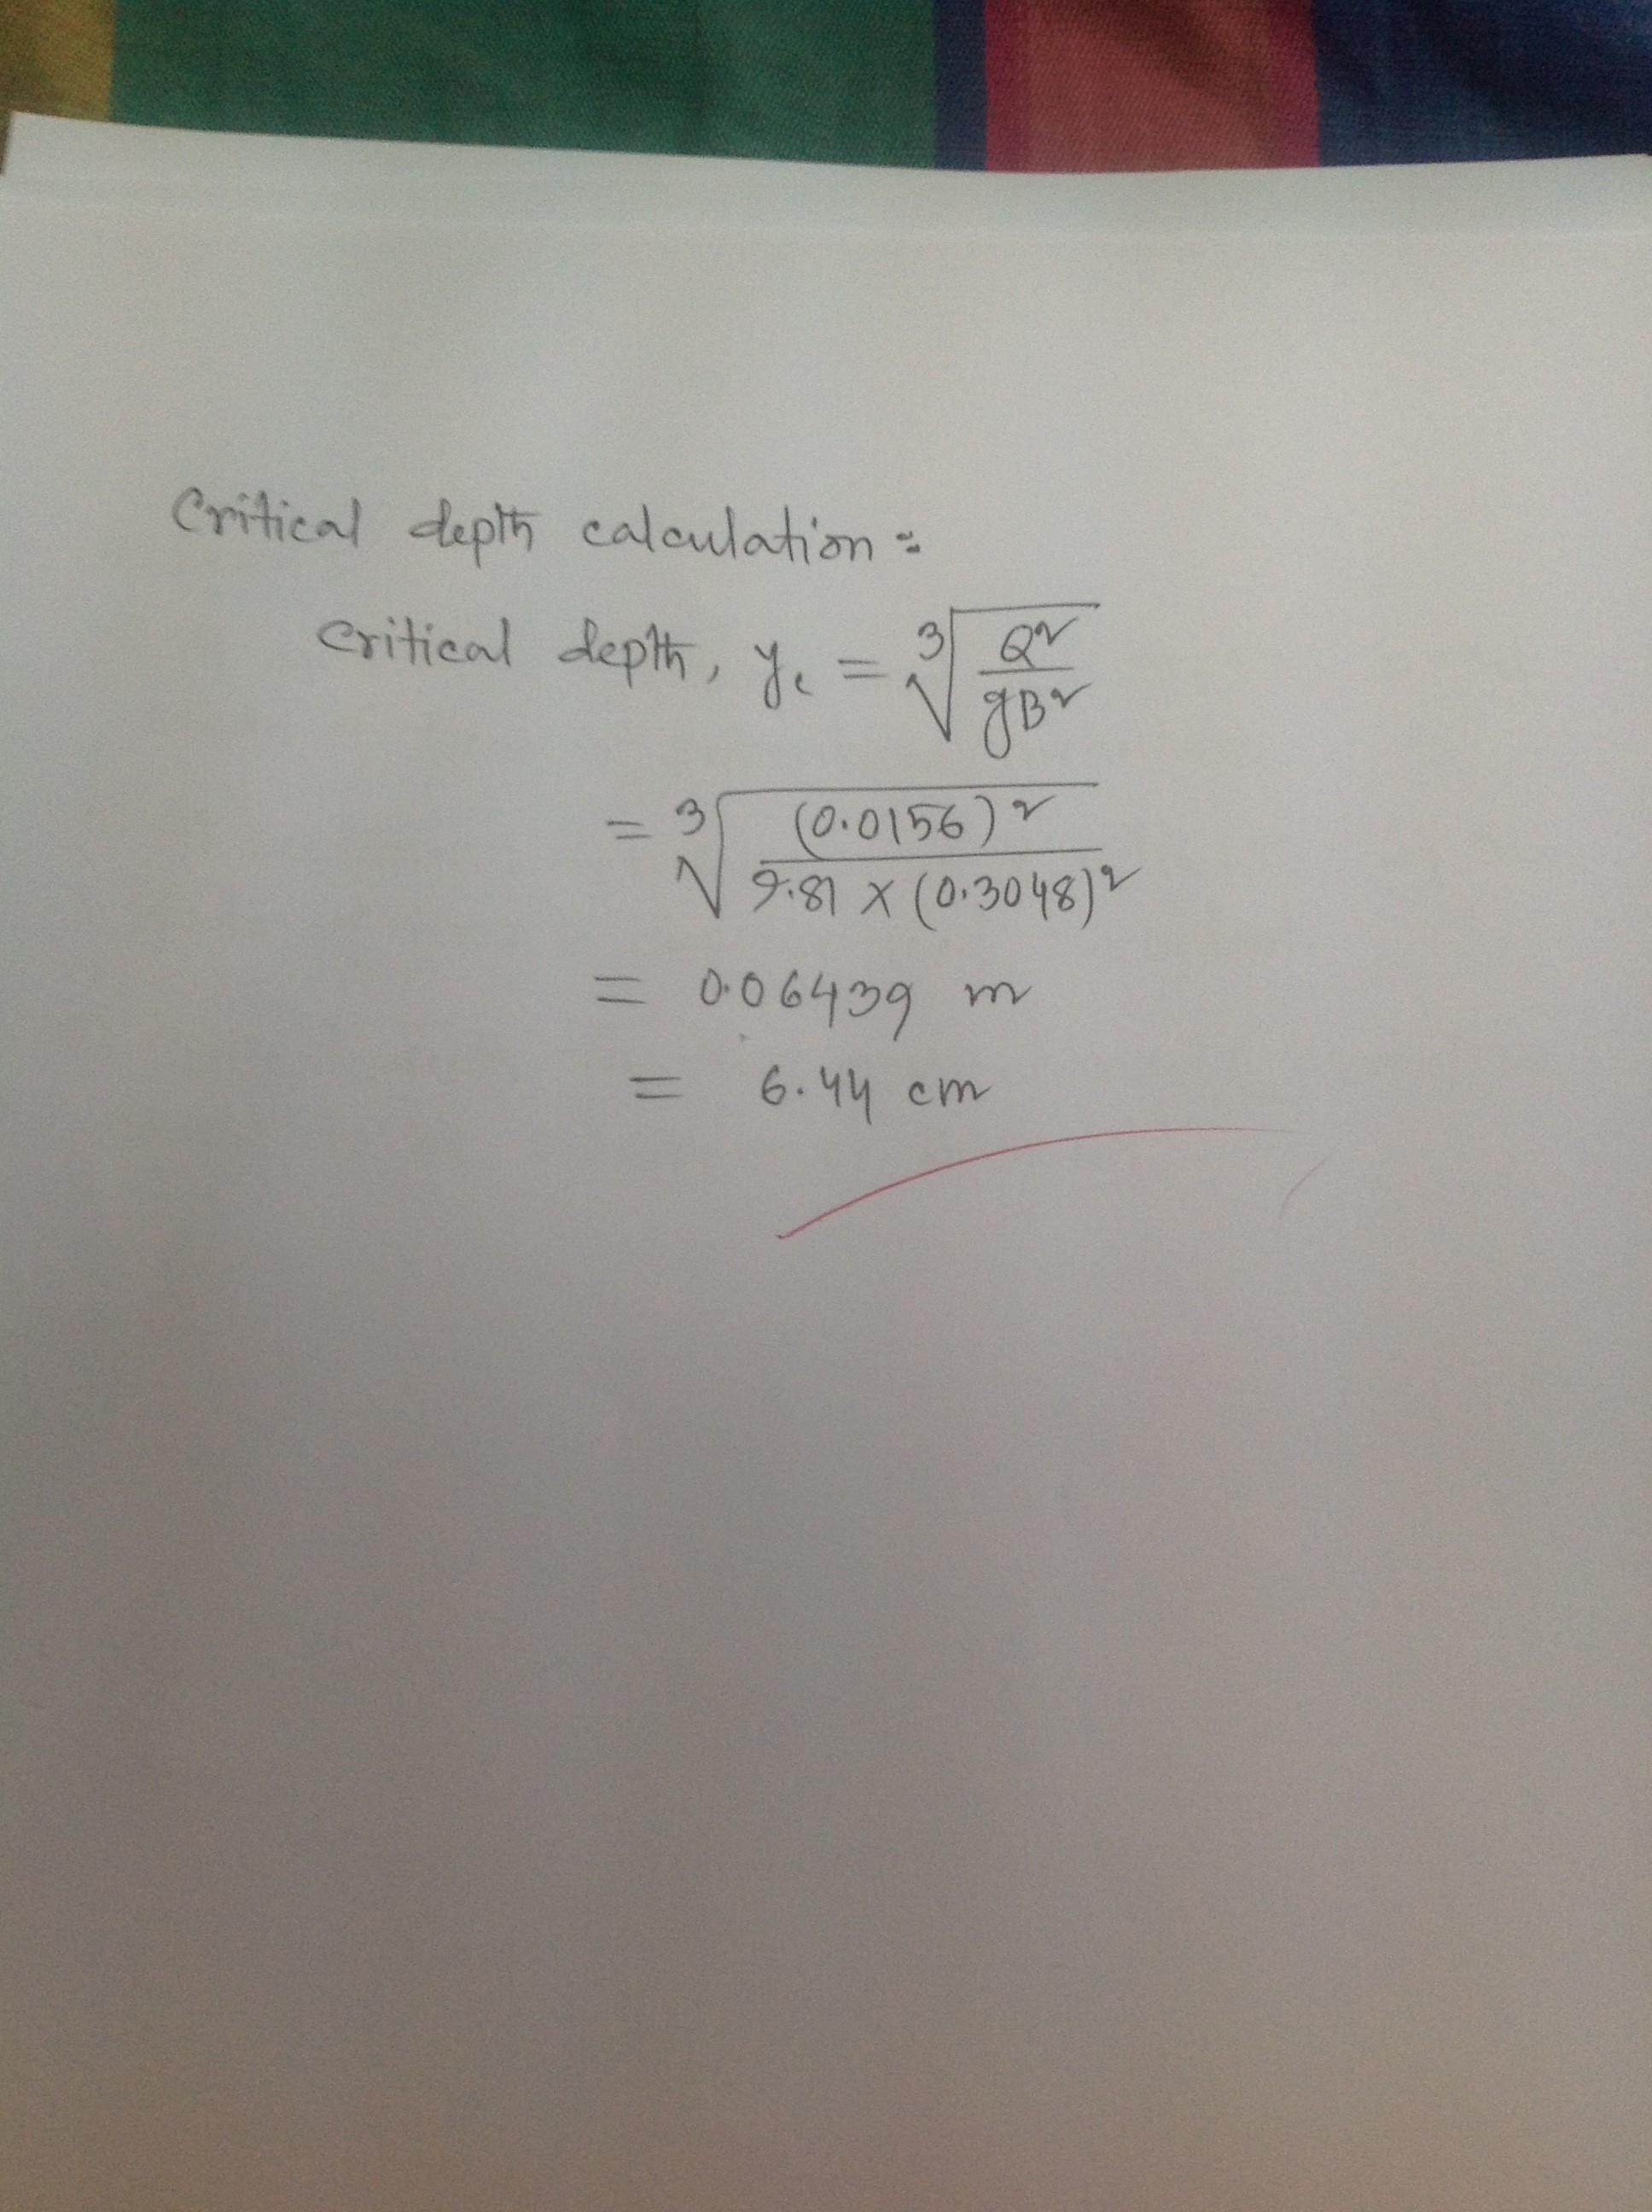 Critical depth calculation :
Critical depth, yc = ∛(Q²/gB²)
= ∛((0.0156)²/9.81 × (0.3048)²)
= 0.06439 m
= 6.44 cm